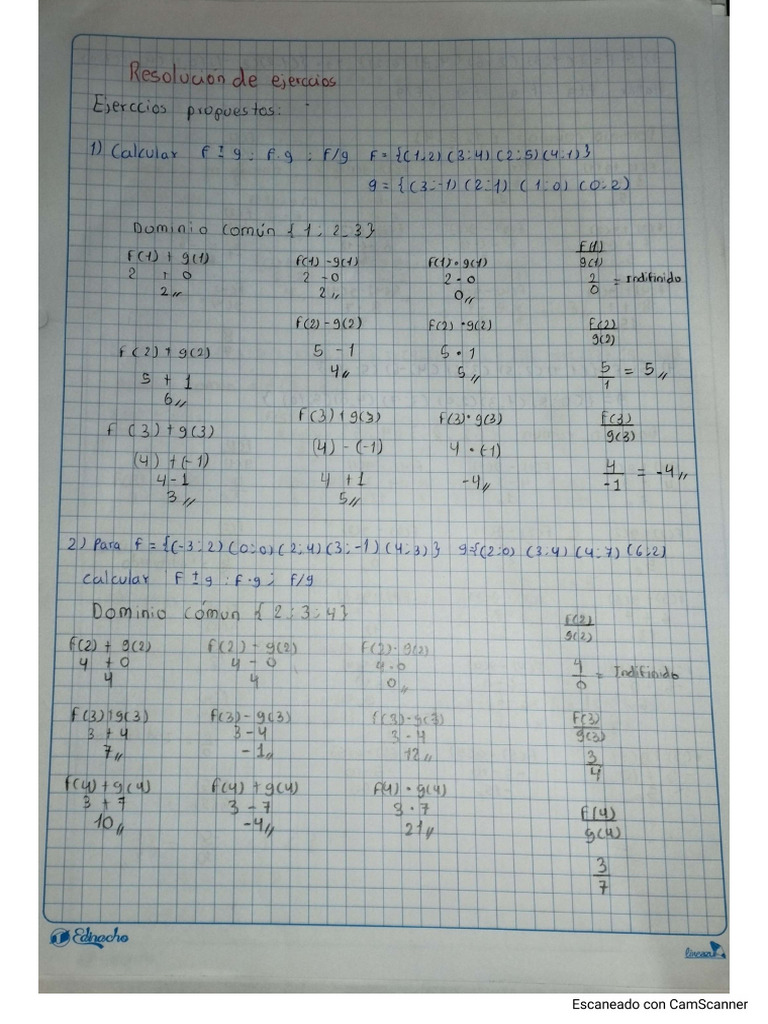 Resolución de ejerccios
Ejerccios propuestos:
1) Calcular f ± g ; f.g ; f/g f = {(1;2) (3;4) (2;5) (4;1)}
g = {(3;-1) (2;1) (1;0) (0;2)
Dominio común {1; 2;3}
f(1) + g(1) f(1) - g(1) f(1) • g(1) f(1)/g(1)
2 + 0 2 - 0 2 - 0 2/0 = Indifinido
2 2 0
f(2) + g(2) f(2) - g(2) f(2) • g(2) f(2)/g(2)
5 + 1 5 - 1 5 • 1 5/1 = 5
6 4 5
f(3) + g(3) f(3) + g(3) f(3) • g(3) f(3)/g(3)
(4) + (-1) (4) - (-1) 4 • (-1) 4/-1 = -4
4 - 1 4 + 1 -4
3 5
2) Para f = {(-3;2) (0;0) (2;4) (3;-1) (4;3)} g={(2;0) (3;4) (4;7) (6;2)
Calcular f ± g ; f.g ; f/g
Dominio cómun {2;3;4}
f(2) + g(2) f(2) - g(2) f(2) - g(2) f(2)/g(2)
4 + 0 4 - 0 4-0 4/0 = Indifinido
4 4 0
f(3) + g(3) f(3) - g(3) f(3) - g(3) f(3)/g(3)
3 + 4 3 - 4 3 - 4 3/4
7 -1 12
f(4) + g(4) f(4) + g(4) f(4) • g(4) f(4)/g(4)
3 + 7 3 - 7 3 • 7 3/7
10 -4 21
Edinacho
Escaneado con CamScanner